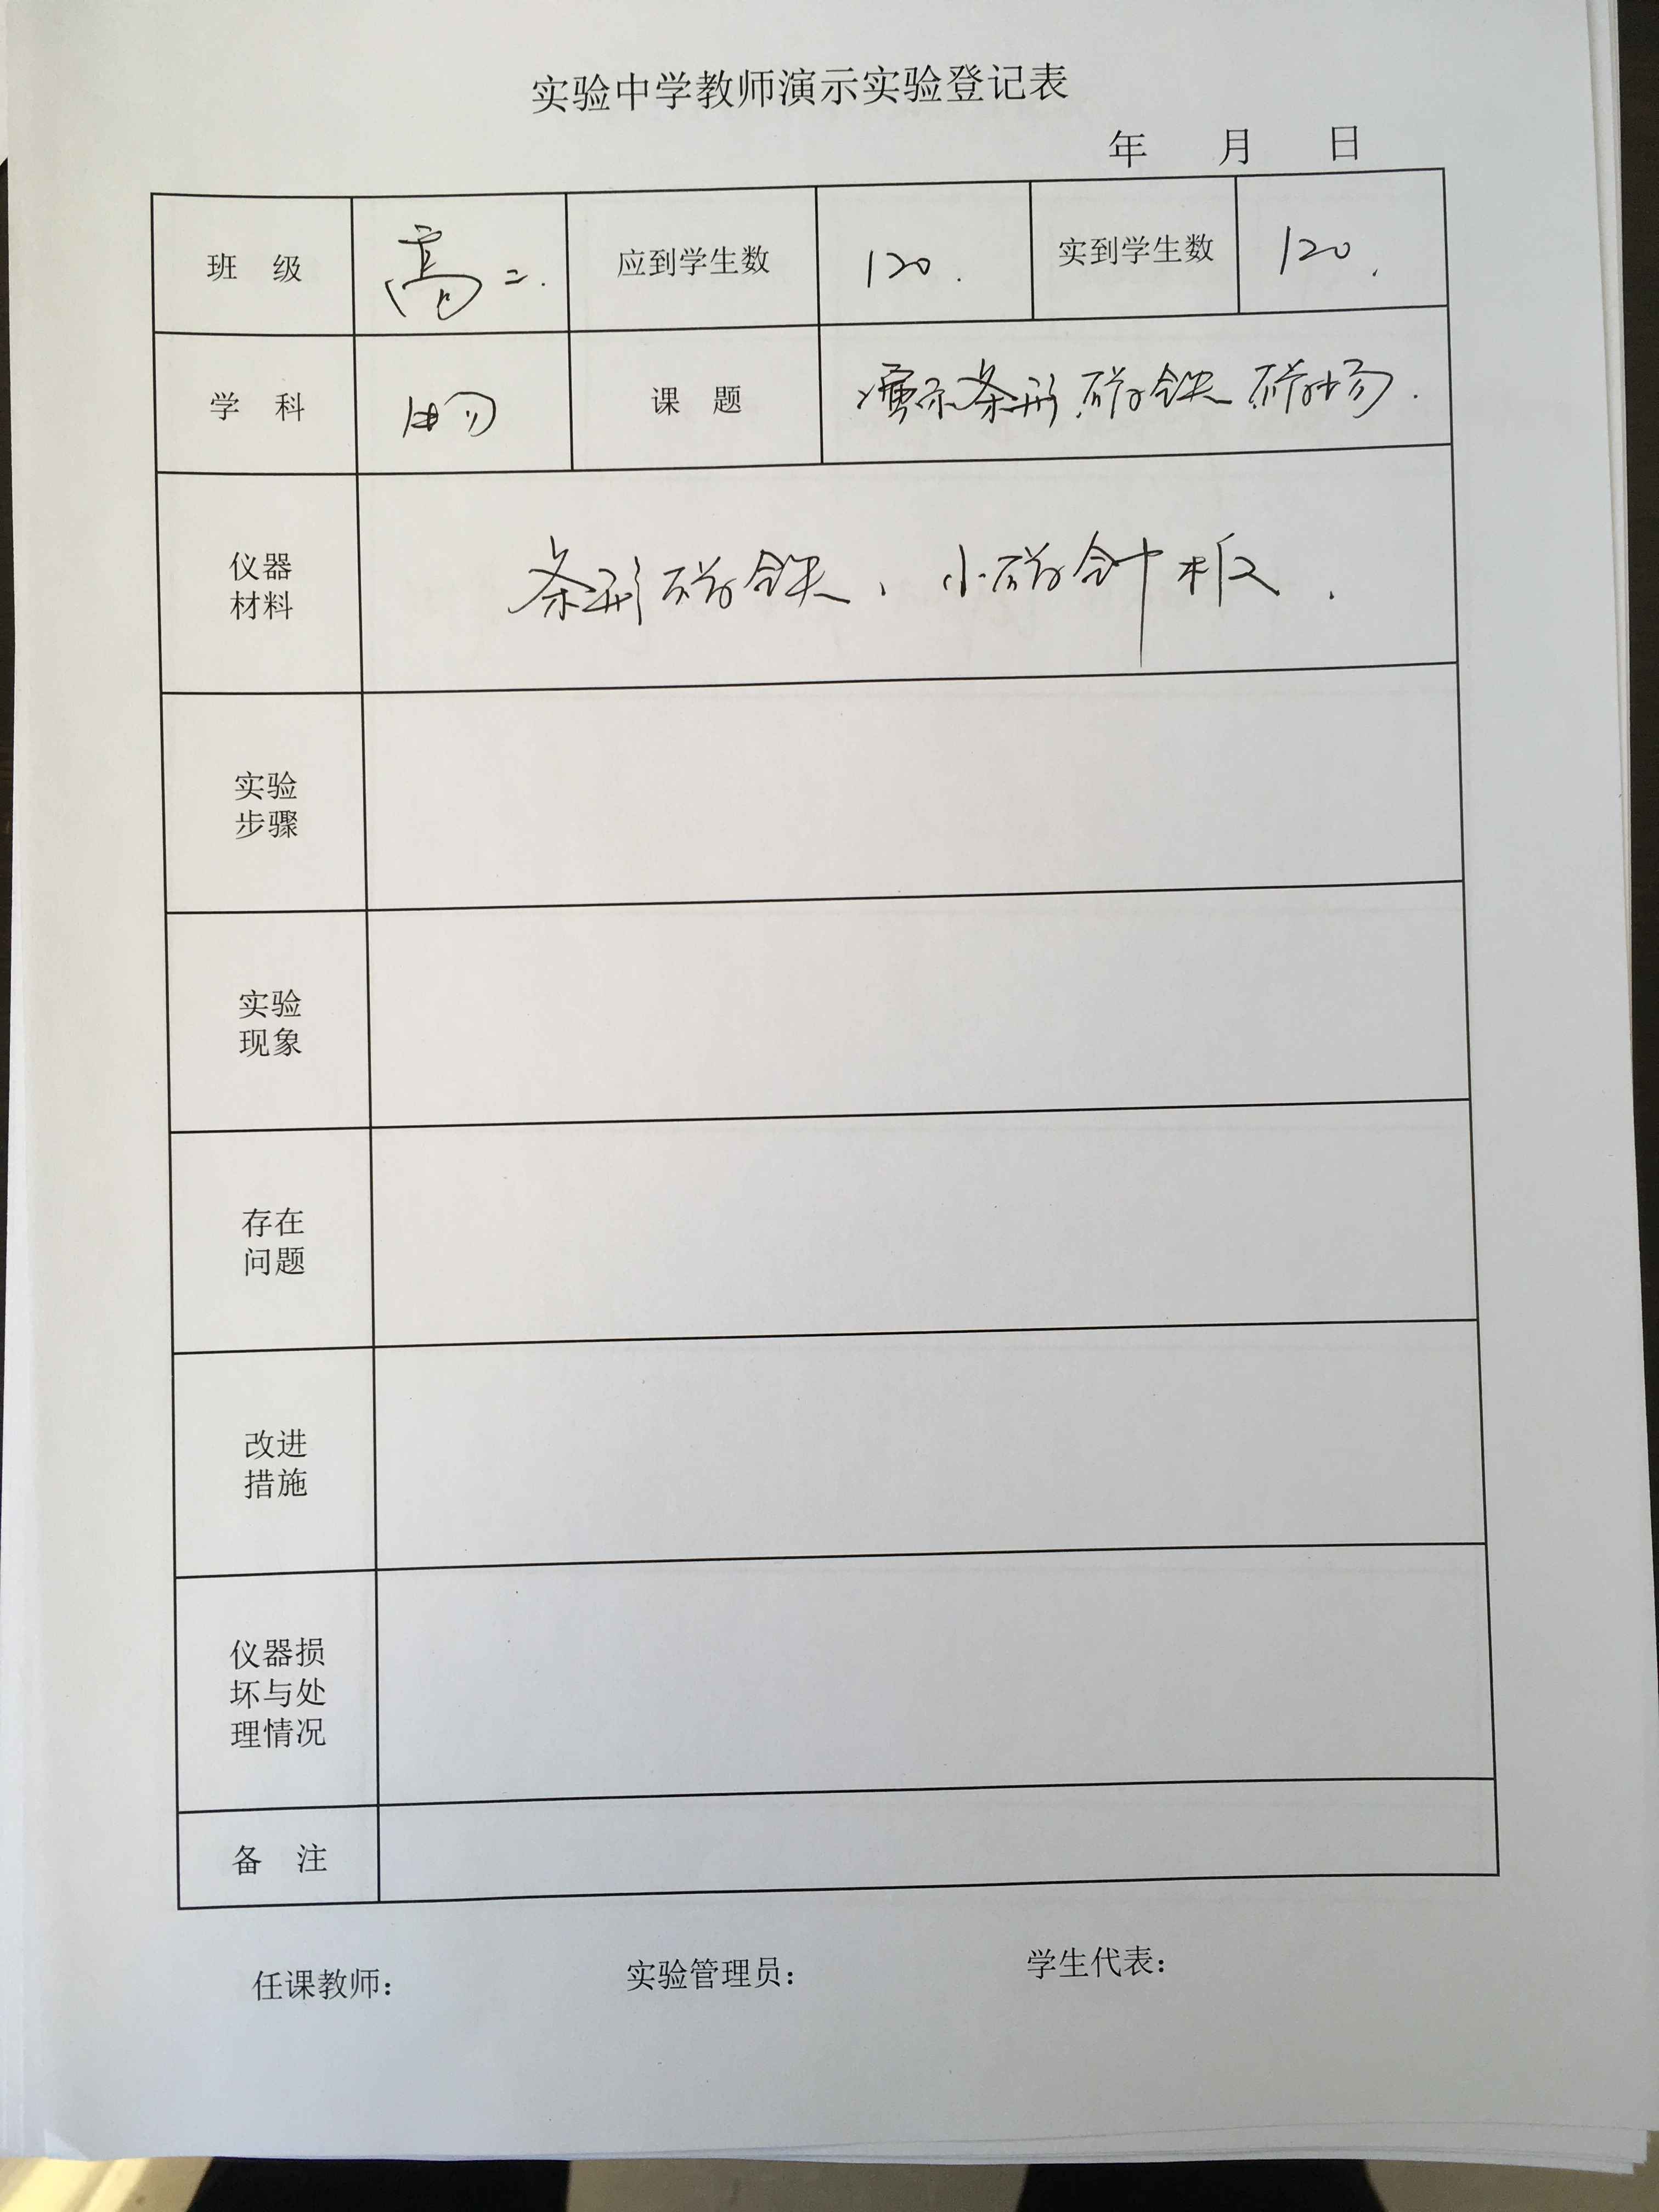 实验中学教师演示实验登记表
年 月 日
班 级 高二. 应到学生数 120. 实到学生数 120.
学 科 物 课 题 演示条形磁铁磁场.
仪器
材料
条形磁铁、小磁针板.
实验
步骤
实验
现象
存在
问题
改进
措施
仪器损
坏与处
理情况
备 注
任课教师： 实验管理员： 学生代表：